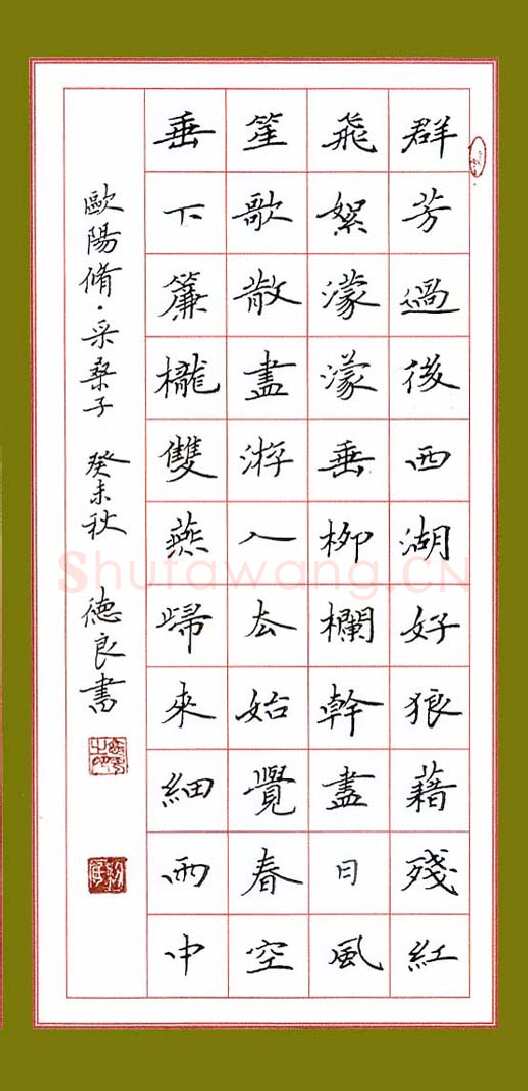 群芳過後西湖好狼藉殘紅
飛絮濛濛垂柳欄幹盡日風
笙歌散盡游人去始覺春空
垂下簾櫳雙燕歸來細雨中
歐陽脩·采桑子 癸未秋 德良書
Shufawang.CN